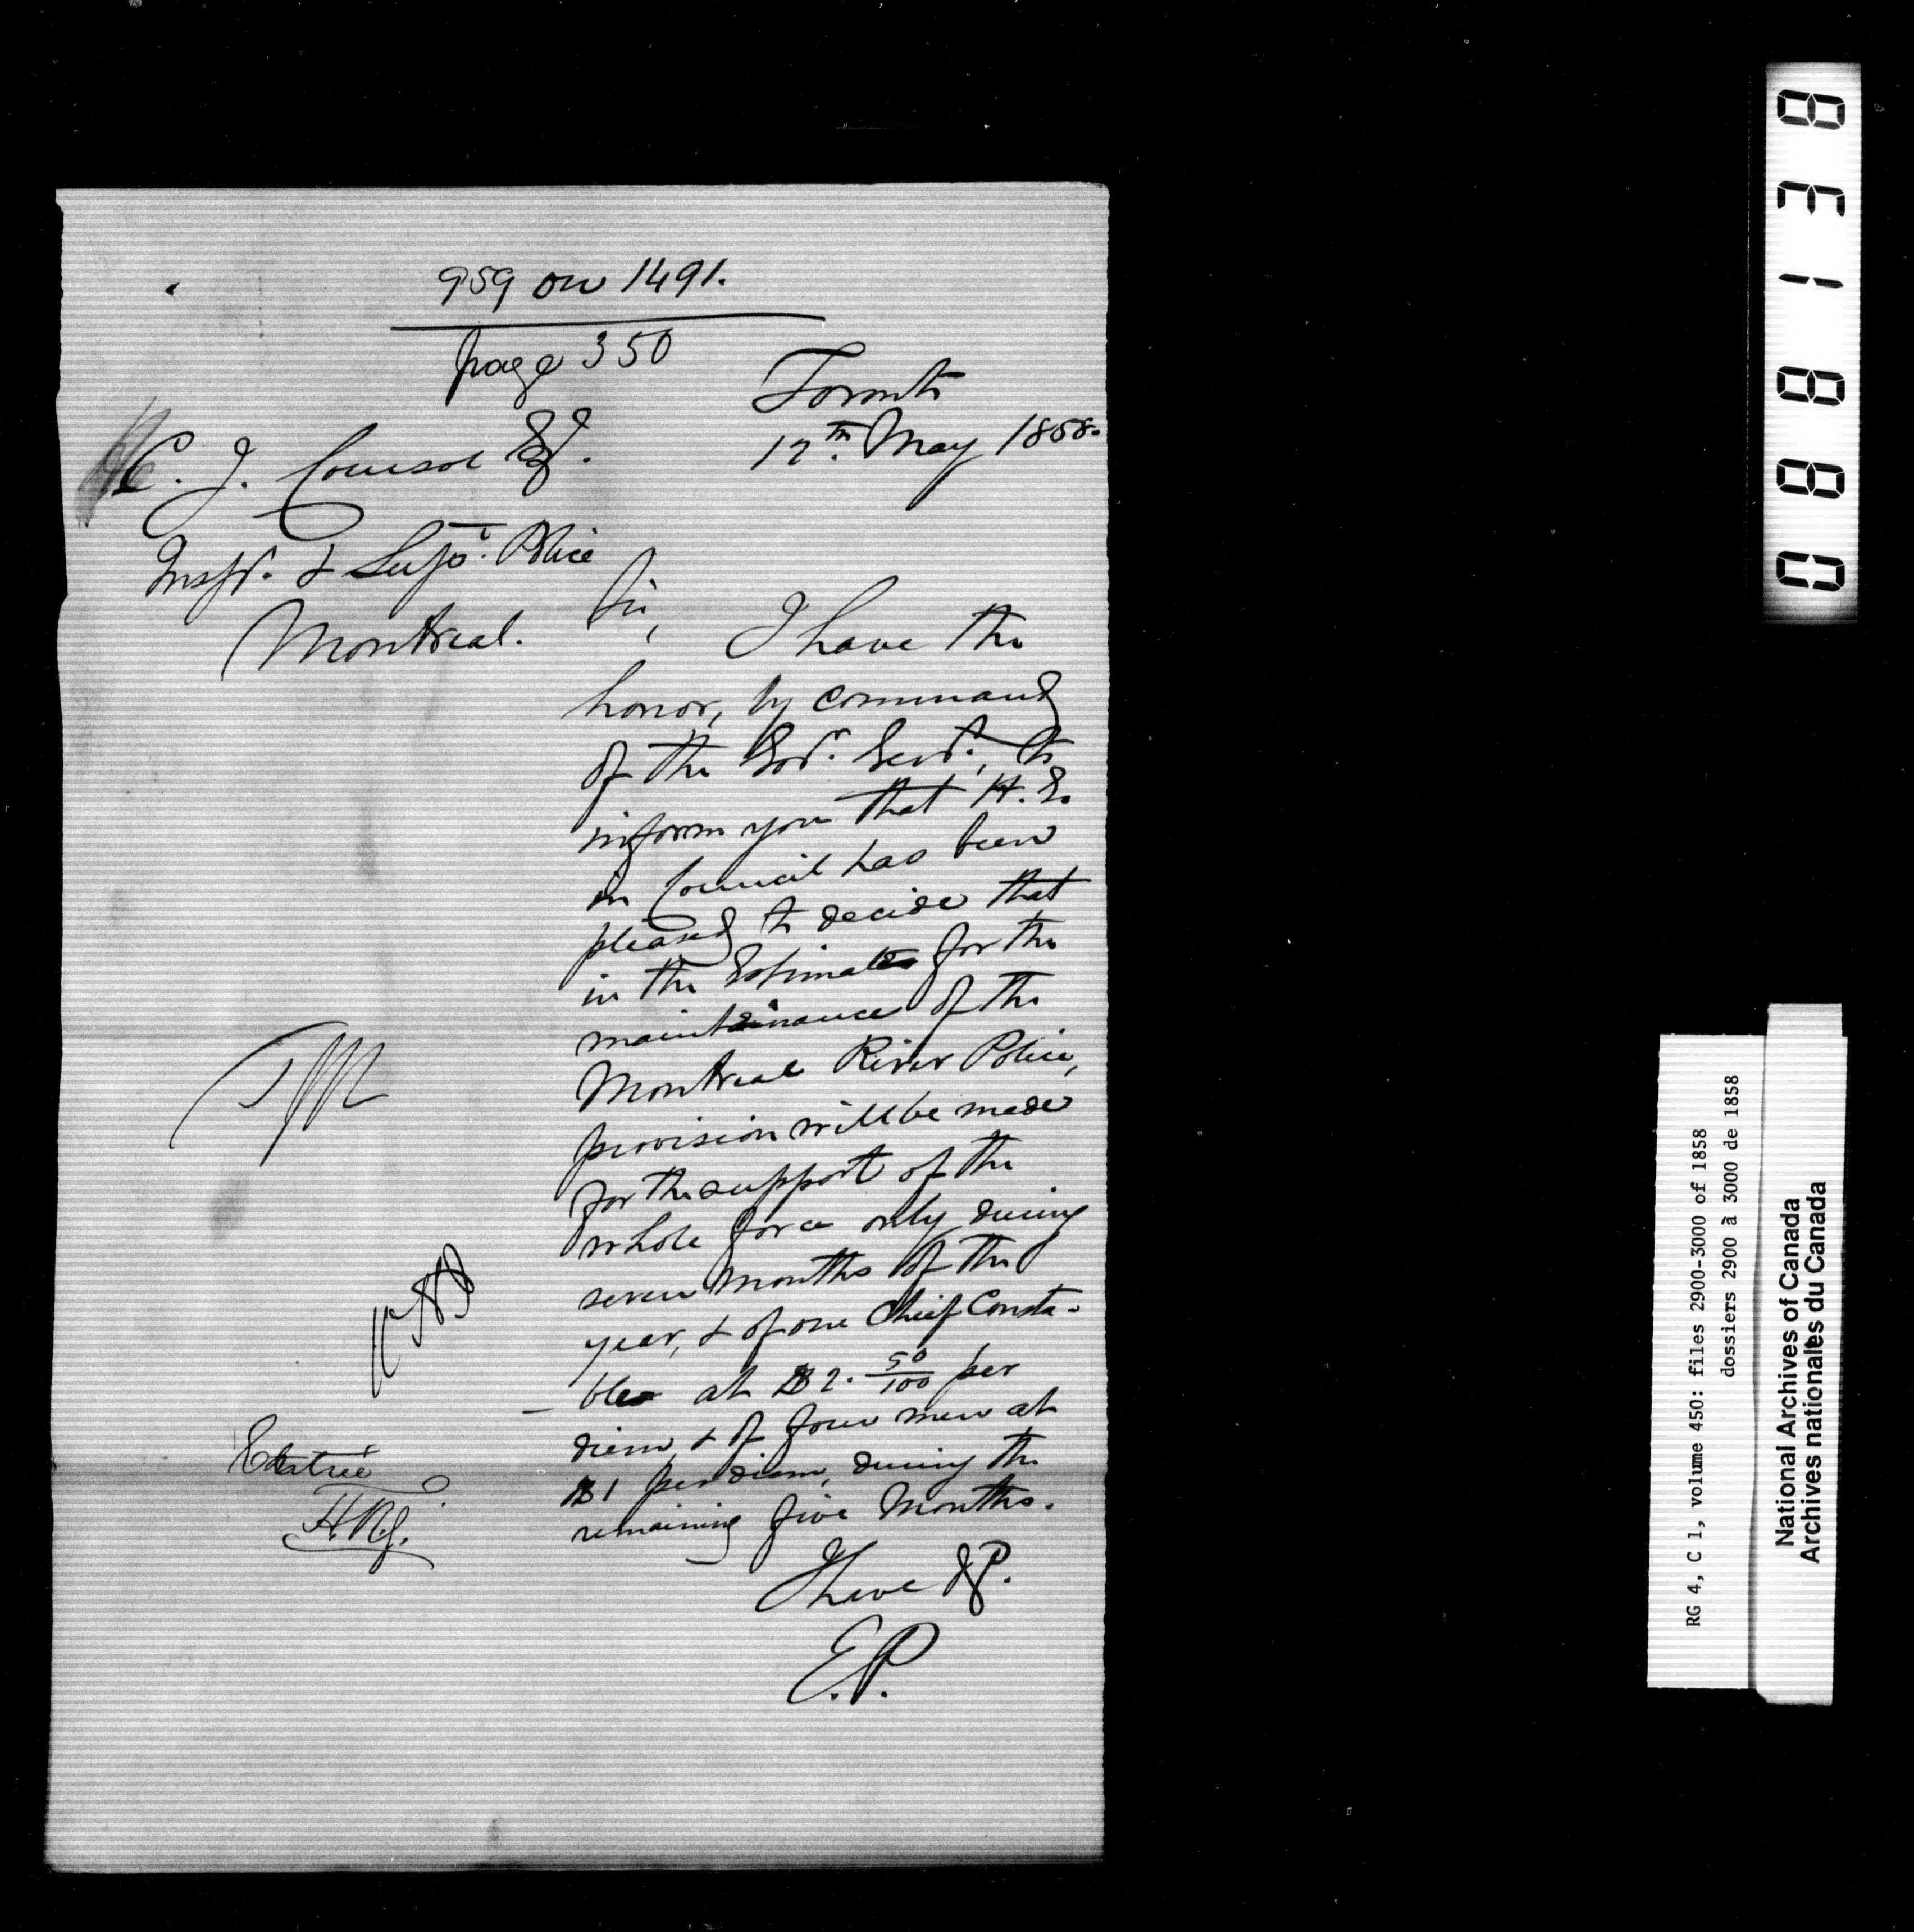 959 on 1491.
page 350
Toronto
12th May 1858.
C. J. Coursol Esq.
Inspr. & Supt. Police
Montreal.
Sir,
I have the
honor, by command
of the Govr. Genl., to
inform you that H. E.
in Council has been
pleased to decide that
in the Estimates for the
maintainance of the
Montreal River Police,
provision will be made
for the support of the
whole force only during
seven months of the
year, & of one Chief Consta-
ble at $2. 50/100 per
diem, & of four men at
$1 per diem, during the
remaining five Months.
I have &c.
E.P.
Entrée
088138
RG 4, C 1, volume 450: files 2900-3000 of 1858
dossiers 2900 à 3000 de 1858
National Archives of Canada
Archives nationales du Canada